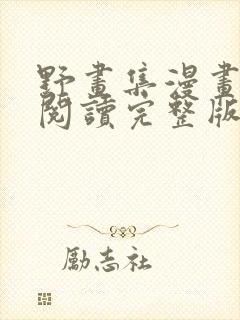 野畫集漫畫
閱讀完整版
勵志社